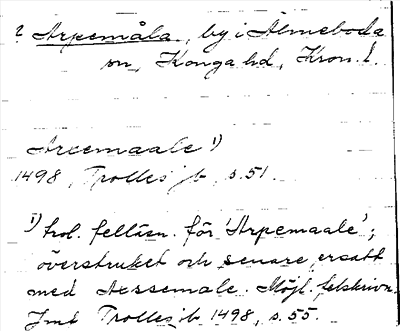 ? Arpemåla, by i Älmeboda
sn, Konga hd, Kron. l.
Arcemaale 1)
1498, Trolles jb, s. 51.
1) trol. felläsn. för 'Arpemaale';
överstruket och senare ersatt
med Aessemale. Möjl. felskrivn.
Jmt Trolles jb 1498, s. 55.